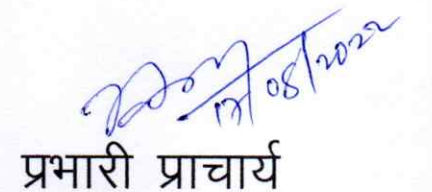 17/08/2022
प्रभारी प्राचार्य